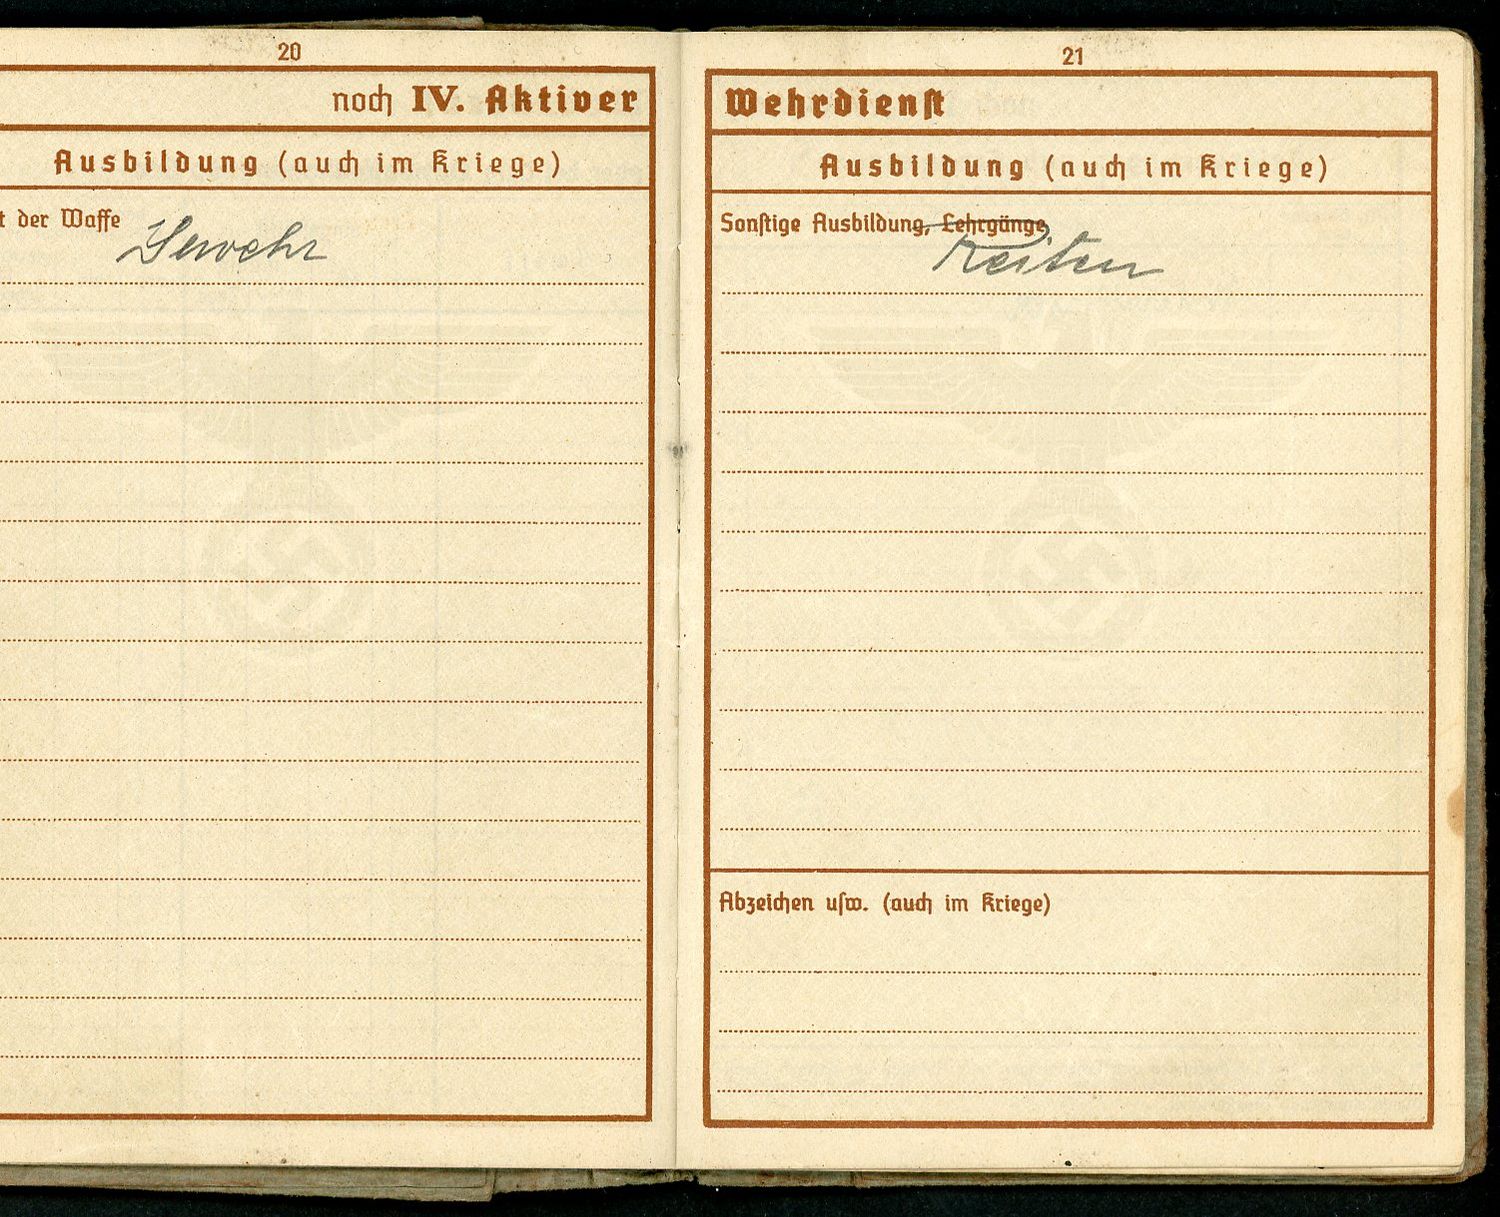 20
noch IV. Aktiver
Ausbildung (auch im Kriege)
t der Waffe
Gewehr
21
Wehrdienst
Ausbildung (auch im Kriege)
Sonstige Ausbildung, Lehrgänge
Reiten
Abzeichen usw. (auch im Kriege)